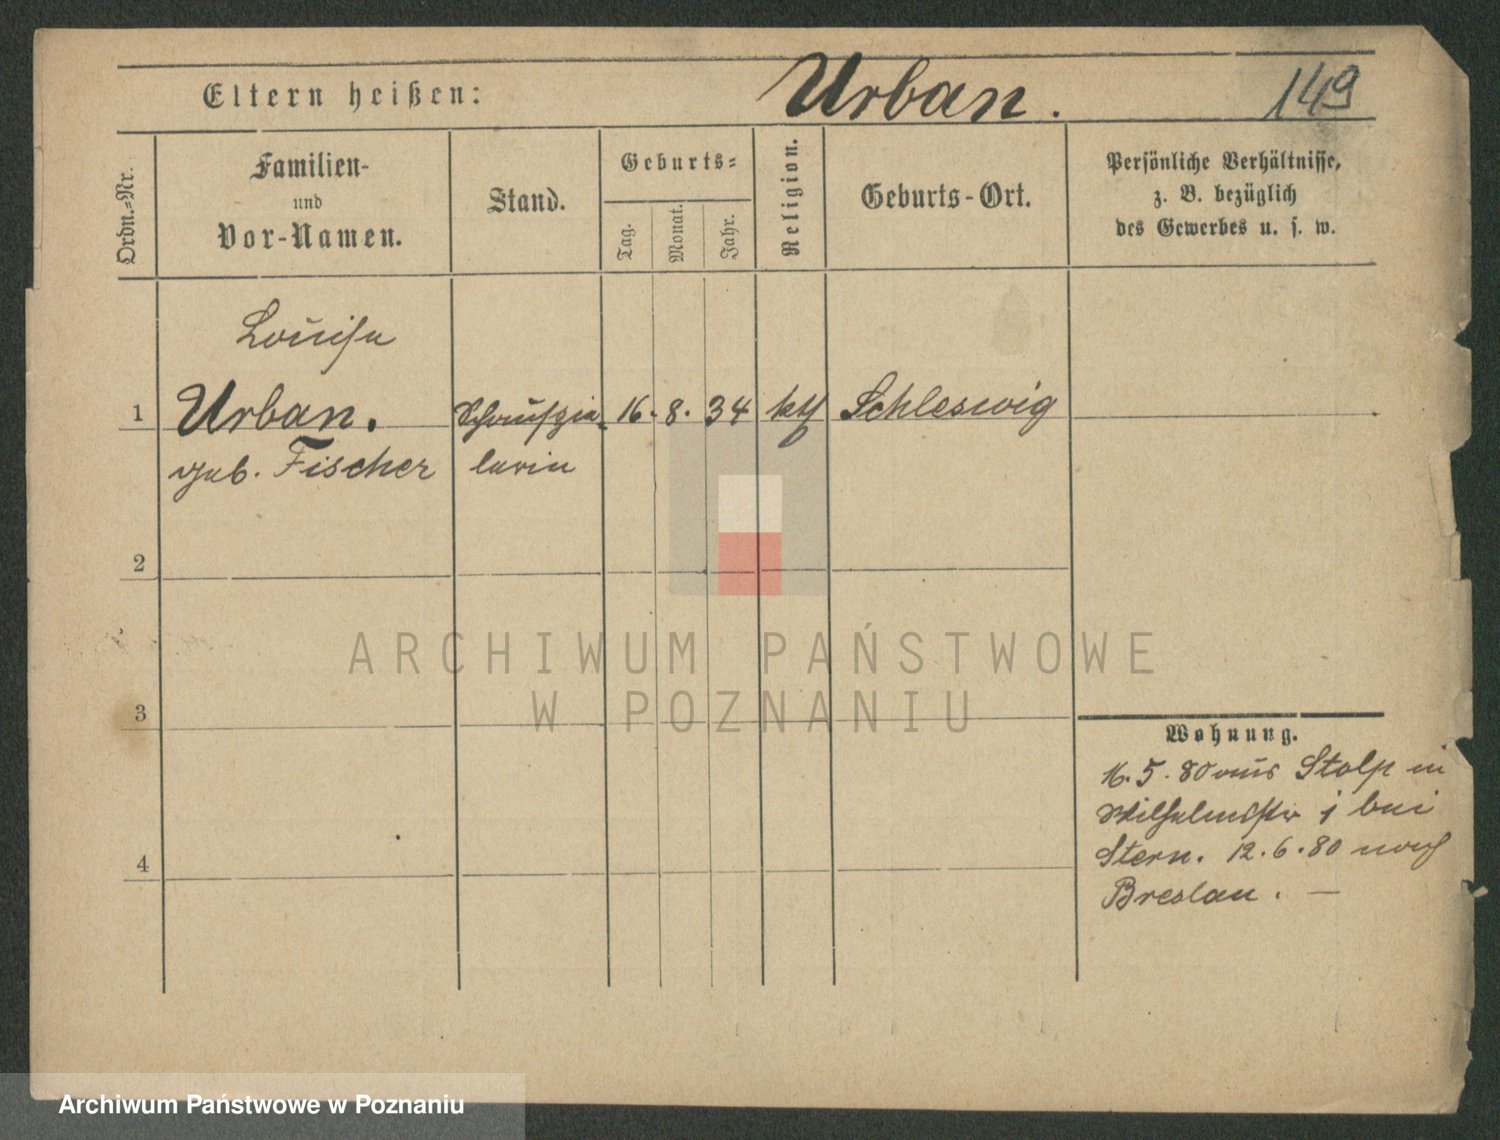 Eltern heißen: Urban. 149
Ordn.-Nr.
Familien-
und
Vor-Namen.
Stand.
Geburts-
Tag.
Monat.
Jahr.
Religion.
Geburts-Ort.
Persönliche Verhältnisse,
z. B. bezüglich
des Gewerbes u. s. w.
Louise
1 Urban. Schauspie- 16. 8. 34 kth Schleswig
geb. Fischer lerin
2
3
4
Wohnung.
16. 5. 80 aus Stolp in
Wilhelmstr 1 bei
Stern. 12. 6. 80 nach
Breslau. —
ARCHIWUM PAŃSTWOWE
W POZNANIU
Archiwum Państwowe w Poznaniu